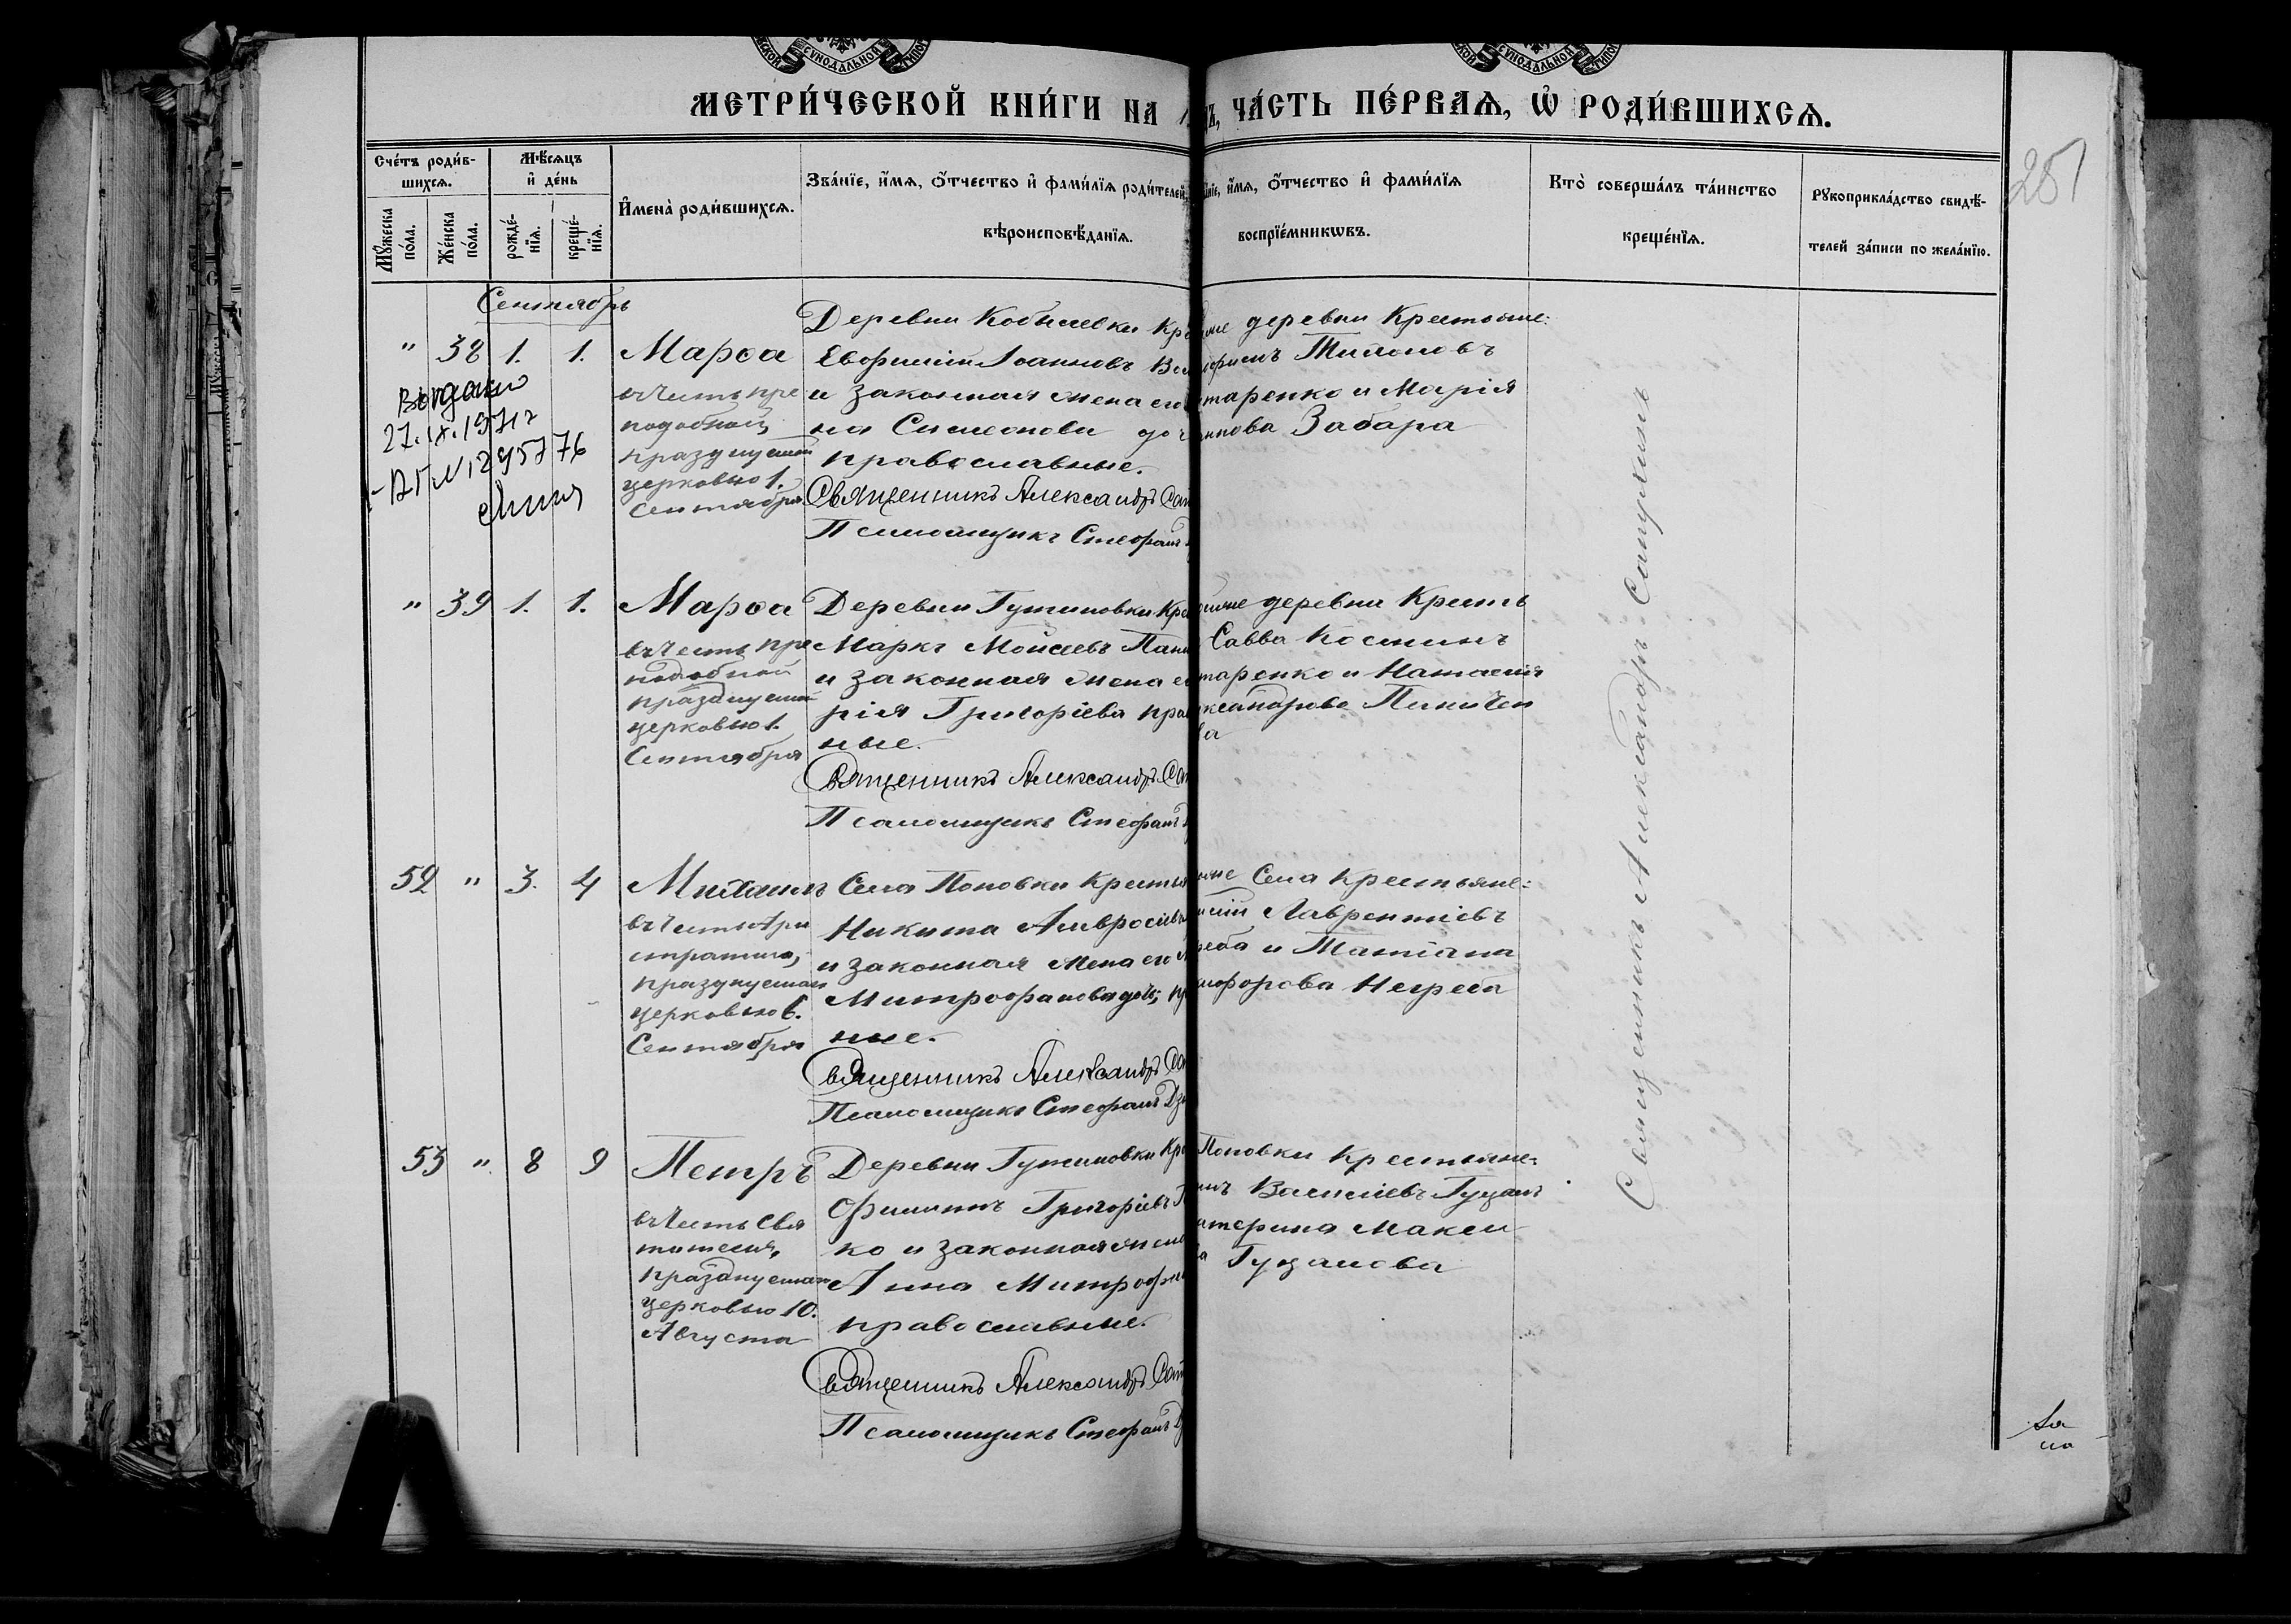 МЕТРИ́ЧЕСКОЙ КНИ́ГИ НА 1 ЧА́СТЬ ПЕ́РВАѦ, Ѽ РОДИ́ВШИХСѦ.
251
Сче́тъ роди́в-
шихсѧ.
Мꙋ́жеска по́ла.
Же́нска по́ла.
Мѣ́сѧцъ
и҆ де́нь
рожде́-
нїѧ.
креще́-
нїѧ.
И҆мена̀ роди́вшихсѧ.
Зва́нїе, и҆́мѧ, ѻ҆́тчество и҆ фами́лїѧ роди́телей,
вѣроисповѣ́данїѧ.
и҆́мѧ, ѻ҆́тчество и҆ фами́лїѧ
воспрїе́мникѡвъ.
Кто̀ соверша́лъ та́инство
креще́нїѧ.
Рꙋкоприкла́дство свидѣ́-
телей за́писи по жела́нїю.
Сентябрь
" 38 1. 1. Марѳа
въ честь пре
подобной,
празднуемой
церковью 1.
Сентября
Деревни Кобылевки Кр
Евфимій Іоанновъ
и законная жена его
на Симеонова доч
православные.
Священникъ Александръ Сап
Псаломщикъ Стефанъ
деревни Крестьяне:
Тимоновъ
таренко и Марія
нова Забара
Выдано
27.IX.1971г
" 39 1. 1. Марѳа
въ честь пре
подобной
празднуемой
церковью 1.
Сентября
Деревни Гутиновки Кре
Маркъ Моисеевъ Пан
и законная жена е
рія Григоріева пра
ные.
Священникъ Александръ Сап
Псаломщикъ Стефанъ
деревни Крест
Савва Костинъ
таренко и Настасія
ксандрова
ва
52 " 3. 4 Михаилъ
въ честь Архи
стратига,
празднуемаго
церковью 6.
Сентября
Села Поповки Крестья
Никита Амвросіевъ
и законная жена его
Митрофанова дочь; пр
ные.
Священникъ Александръ Сап
Псаломщикъ Стефанъ Дз
Села Крестьяне:
Лаврентіевъ
реба и Татіана
кифорова Негреба
53 " 8 9 Петръ
въ честь Свя
тителя,
празднуемаго
церковью 10.
Августа
Деревни Гутиновки Кре
Филиппъ Григорьевъ
ко и законная жена
Анна Митрофа
православные.
Священникъ Александръ Сап
Псаломщикъ Стефанъ Д
Поповки Крестьяне:
Василіевъ Гуцалъ
атерина Макси
ва Гуцалова
Священникъ Александръ Сапухинъ